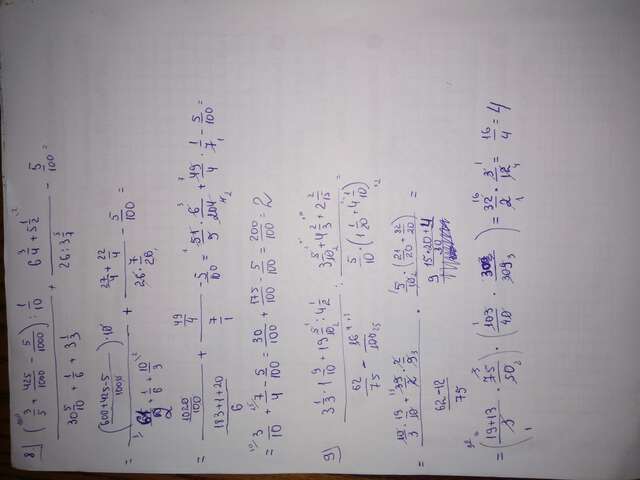 8) (3/5 + 425/1000 - 5/1000) : 1/10 / 30 5/10 + 1/6 + 3 1/3 + 6 3/4 + 5 1/2 / 26 : 3 5/7 - 5/100 =
= (600+425-5 / 1000) · 10 / 61/2 + 1/6 + 10/3 + 27/4 + 22/4 / 26 · 7/26 - 5/100 =
= 1020/100 / 183+1+20 / 6 + 49/4 / 7/1 - 5/100 = 51/5 · 6/204 + 49/4 · 1/7 - 5/100 =
= 3/10 + 7/4 - 5/100 = 30/100 + 175-5/100 = 200/100 = 2
9) 3 1/3 · 1 9/10 + 19 5/10 : 4 1/2 / 62/75 - 16/100 : 3 5/10 + 4 2/3 + 2 2/15 / 5/10 · (1 1/20 + 4 1/10) =
= 10/3 · 19/10 + 39/2 · 2/9 / 62-12 / 75 · 5/10 · (21/20 + 82/20) / =
= (19+13 / 3 · 75/50) · (103/40 · 30/309) = 32/2 · 3/12 = 16/4 = 4